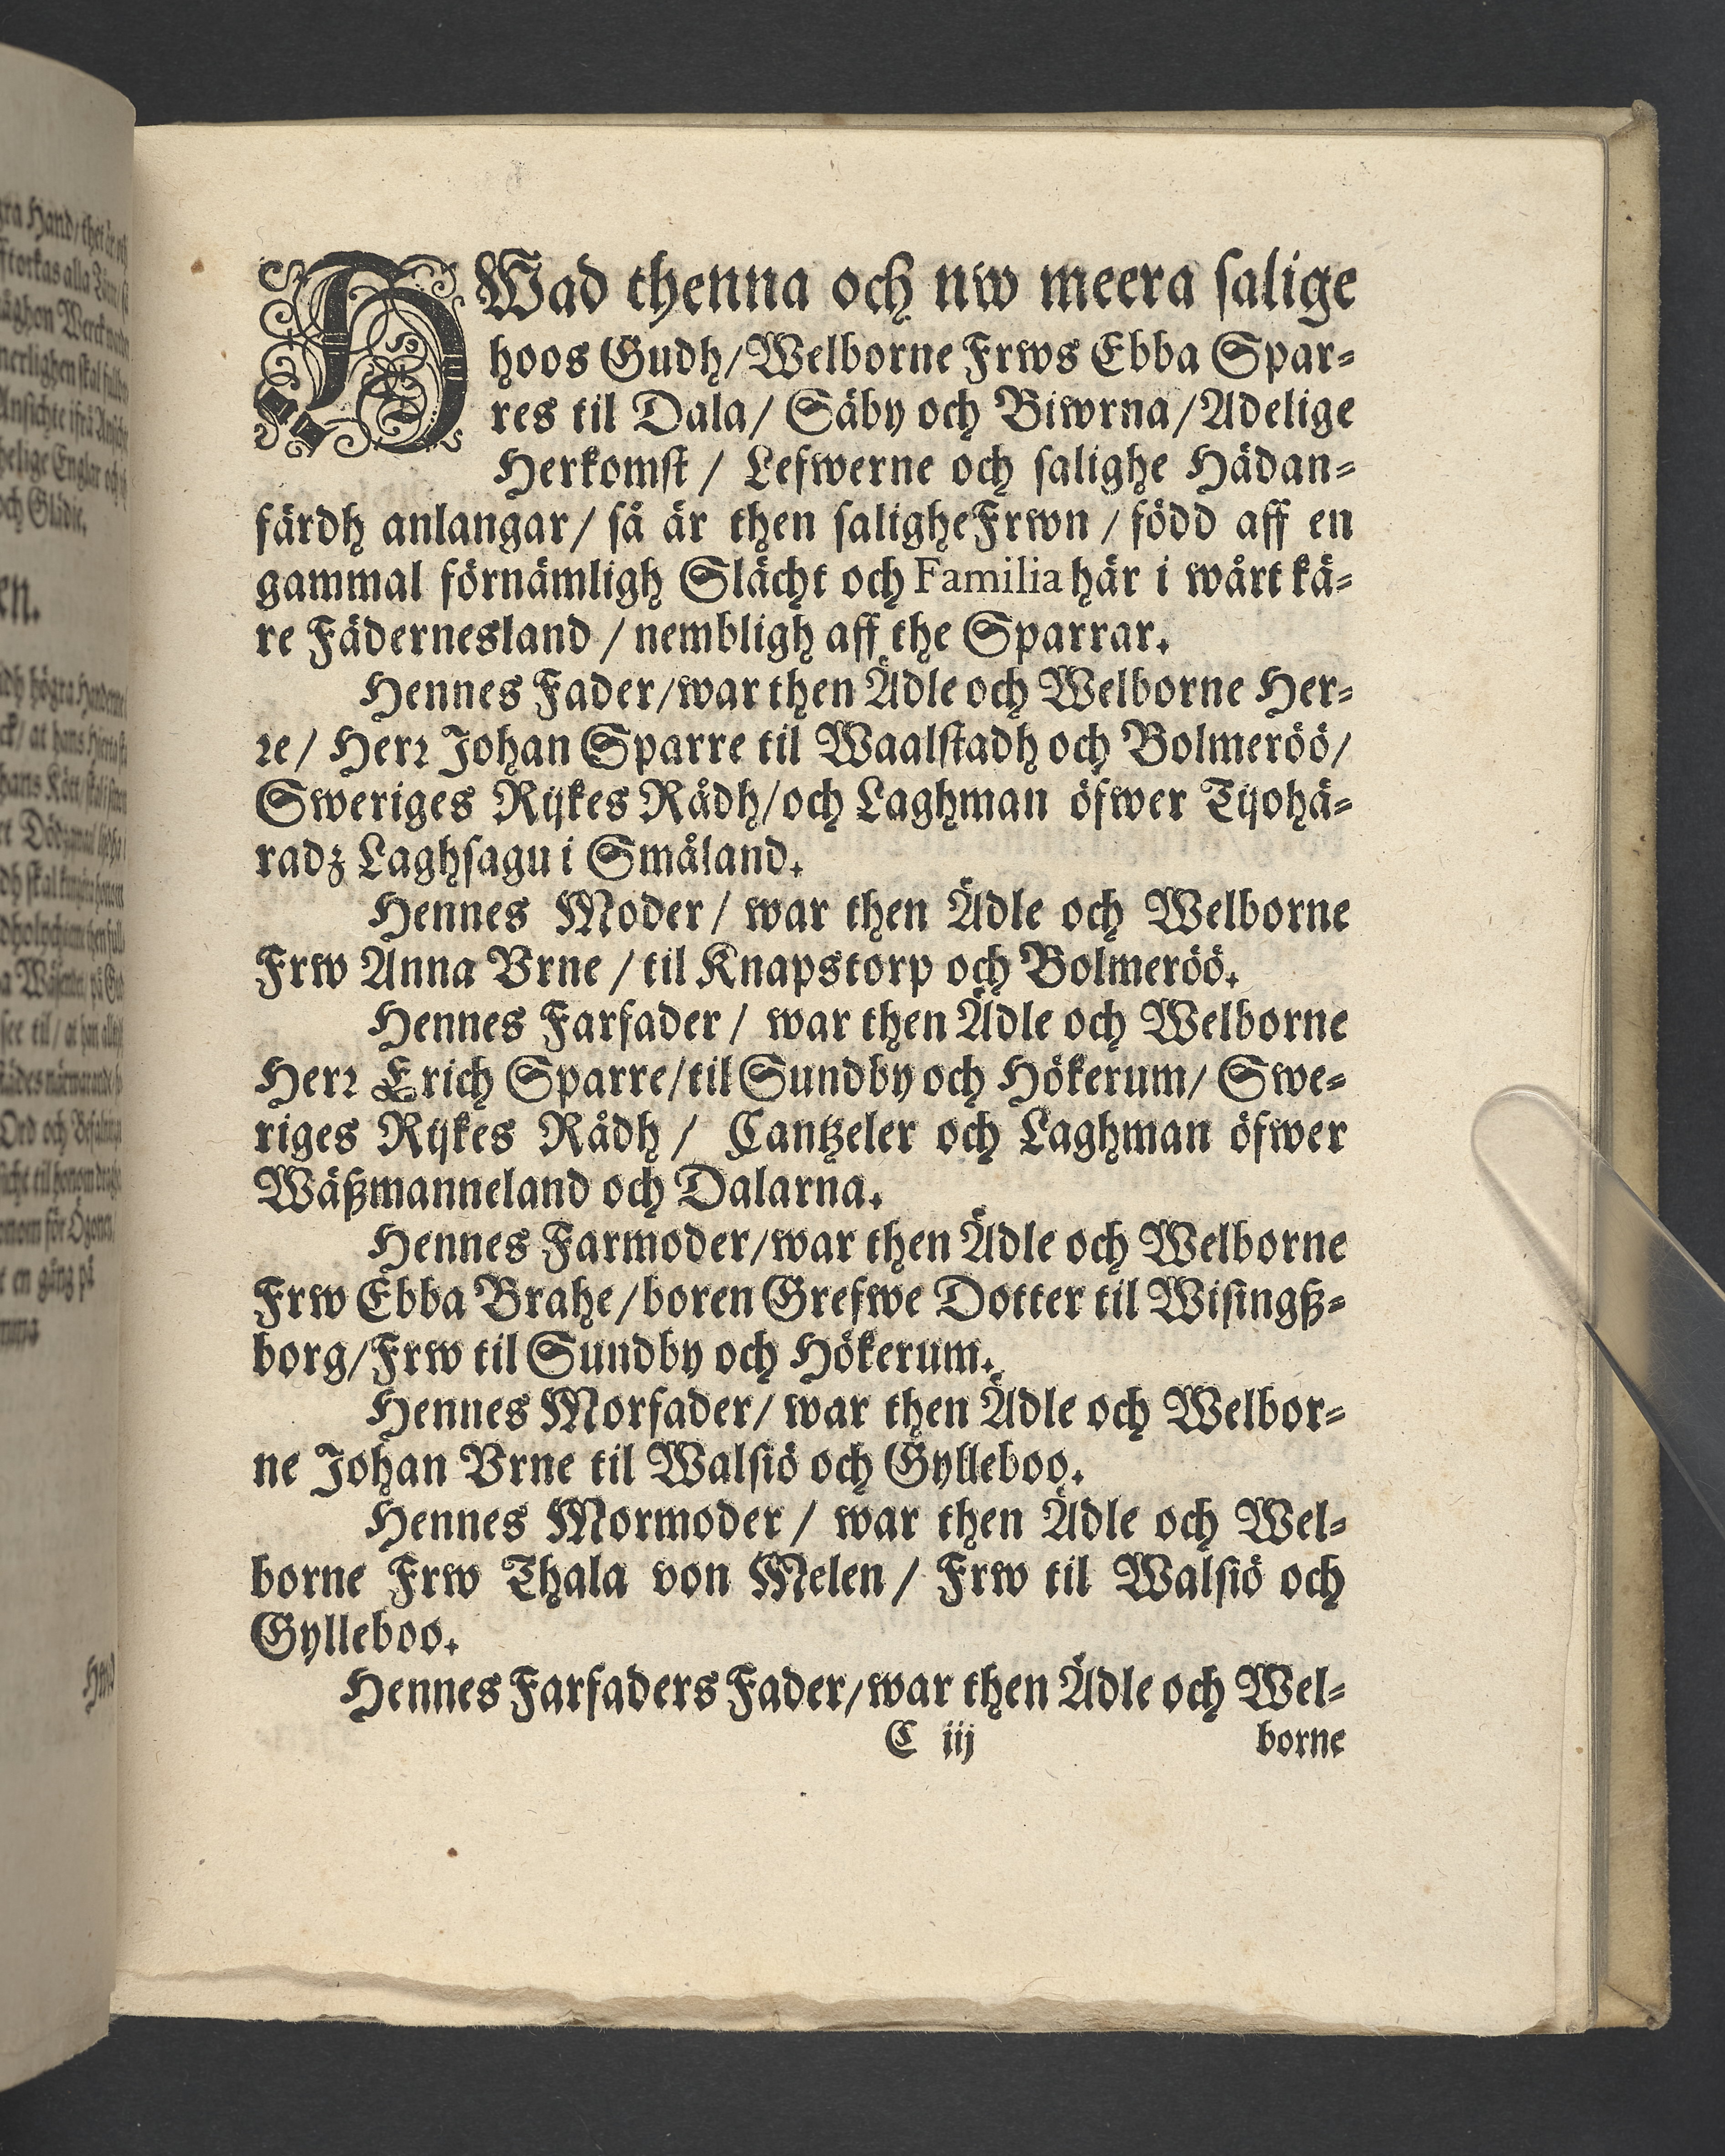 HWad thenna och nw meera salige
hoos Gudh/Welborne Frws Ebba Spar-
res til Dala/ Säby och Biwrna/Adelige
Herkomst / Lefwerne och salighe Hädan-
färdh anlangar/ så är then salighe Frwn / född aff en
gammal förnämligh Slächt och Familia här i wårt kä-
re Fädernesland / nembligh aff the Sparrar.
Hennes Fader/war then Ädle och Welborne Her-
re/ Herr Johan Sparre til Waalstadh och Bolmeröö/
Sweriges Rijkes Rådh/och Laghman öfwer Tijohä-
radz Laghsagu i Småland.
Hennes Moder/ war then Ädle och Welborne
Frw Anna Vrne / til Knapstorp och Bolmeröö.
Hennes Farfader / war then Ädle och Welborne
Herr Erich Sparre/til Sundby och Hökerum/ Swe-
riges Rijkes Rådh / Cantzeler och Laghman öfwer
Wäßmanneland och Dalarna.
Hennes Farmoder/war then Ädle och Welborne
Frw Ebba Brahe/boren Grefwe Dotter til Wisingß-
borg/Frw til Sundby och Hökerum.
Hennes Morfader/ war then Ädle och Welbor-
ne Johan Vrne til Walsiö och Gylleboo.
Hennes Mormoder / war then Ädle och Wel-
borne Frw Thala von Melen / Frw til Walsiö och
Gylleboo.
Hennes Farfaders Fader/war then Ädle och Wel-
C iij borne